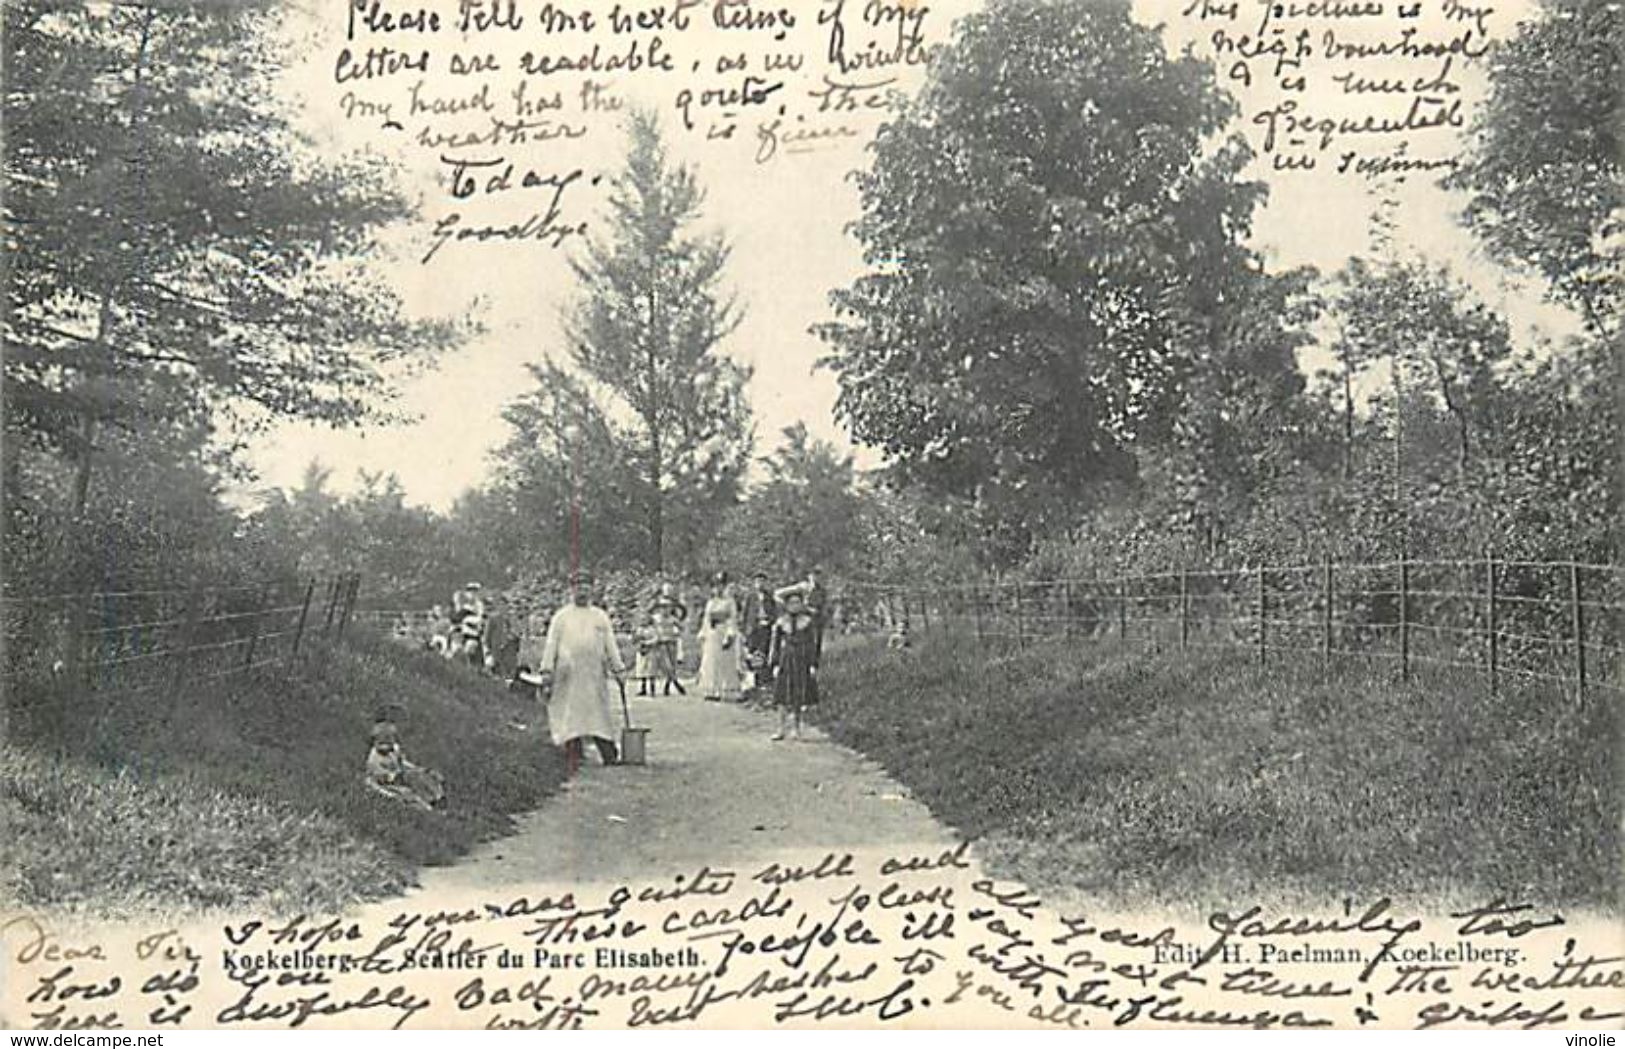 Please Tell Me next time if My
letters are readable, as in winter
My hand has the goute, The
weather is finer
Today.
Goodbye
This picture is My
neighbourhood
is much
frequented
in summer
Dear Sir, I hope you are quite well and all your family too,
how do you like these cards, please say next time, the weather
here is awfully bad, many people ill with Influenza & grippe
with best wishes to you all.
Koekelberg. — Sentier du Parc Elisabeth.
Edit. H. Paelman, Koekelberg.
delcampe.net
vinolie